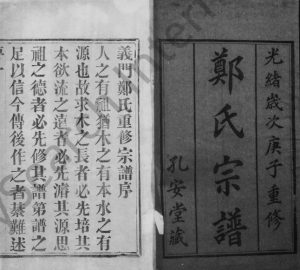 光緒歲次庚子重修
鄭氏宗譜
孔安堂藏
義門鄭氏重修宗譜序
人之有祖猶木之有本水之有
源也故求木之長者必先培其
本欲流之遠者必先濬其源思
祖之德者必先修其譜第譜之
足以信今傳後作之者綦難述